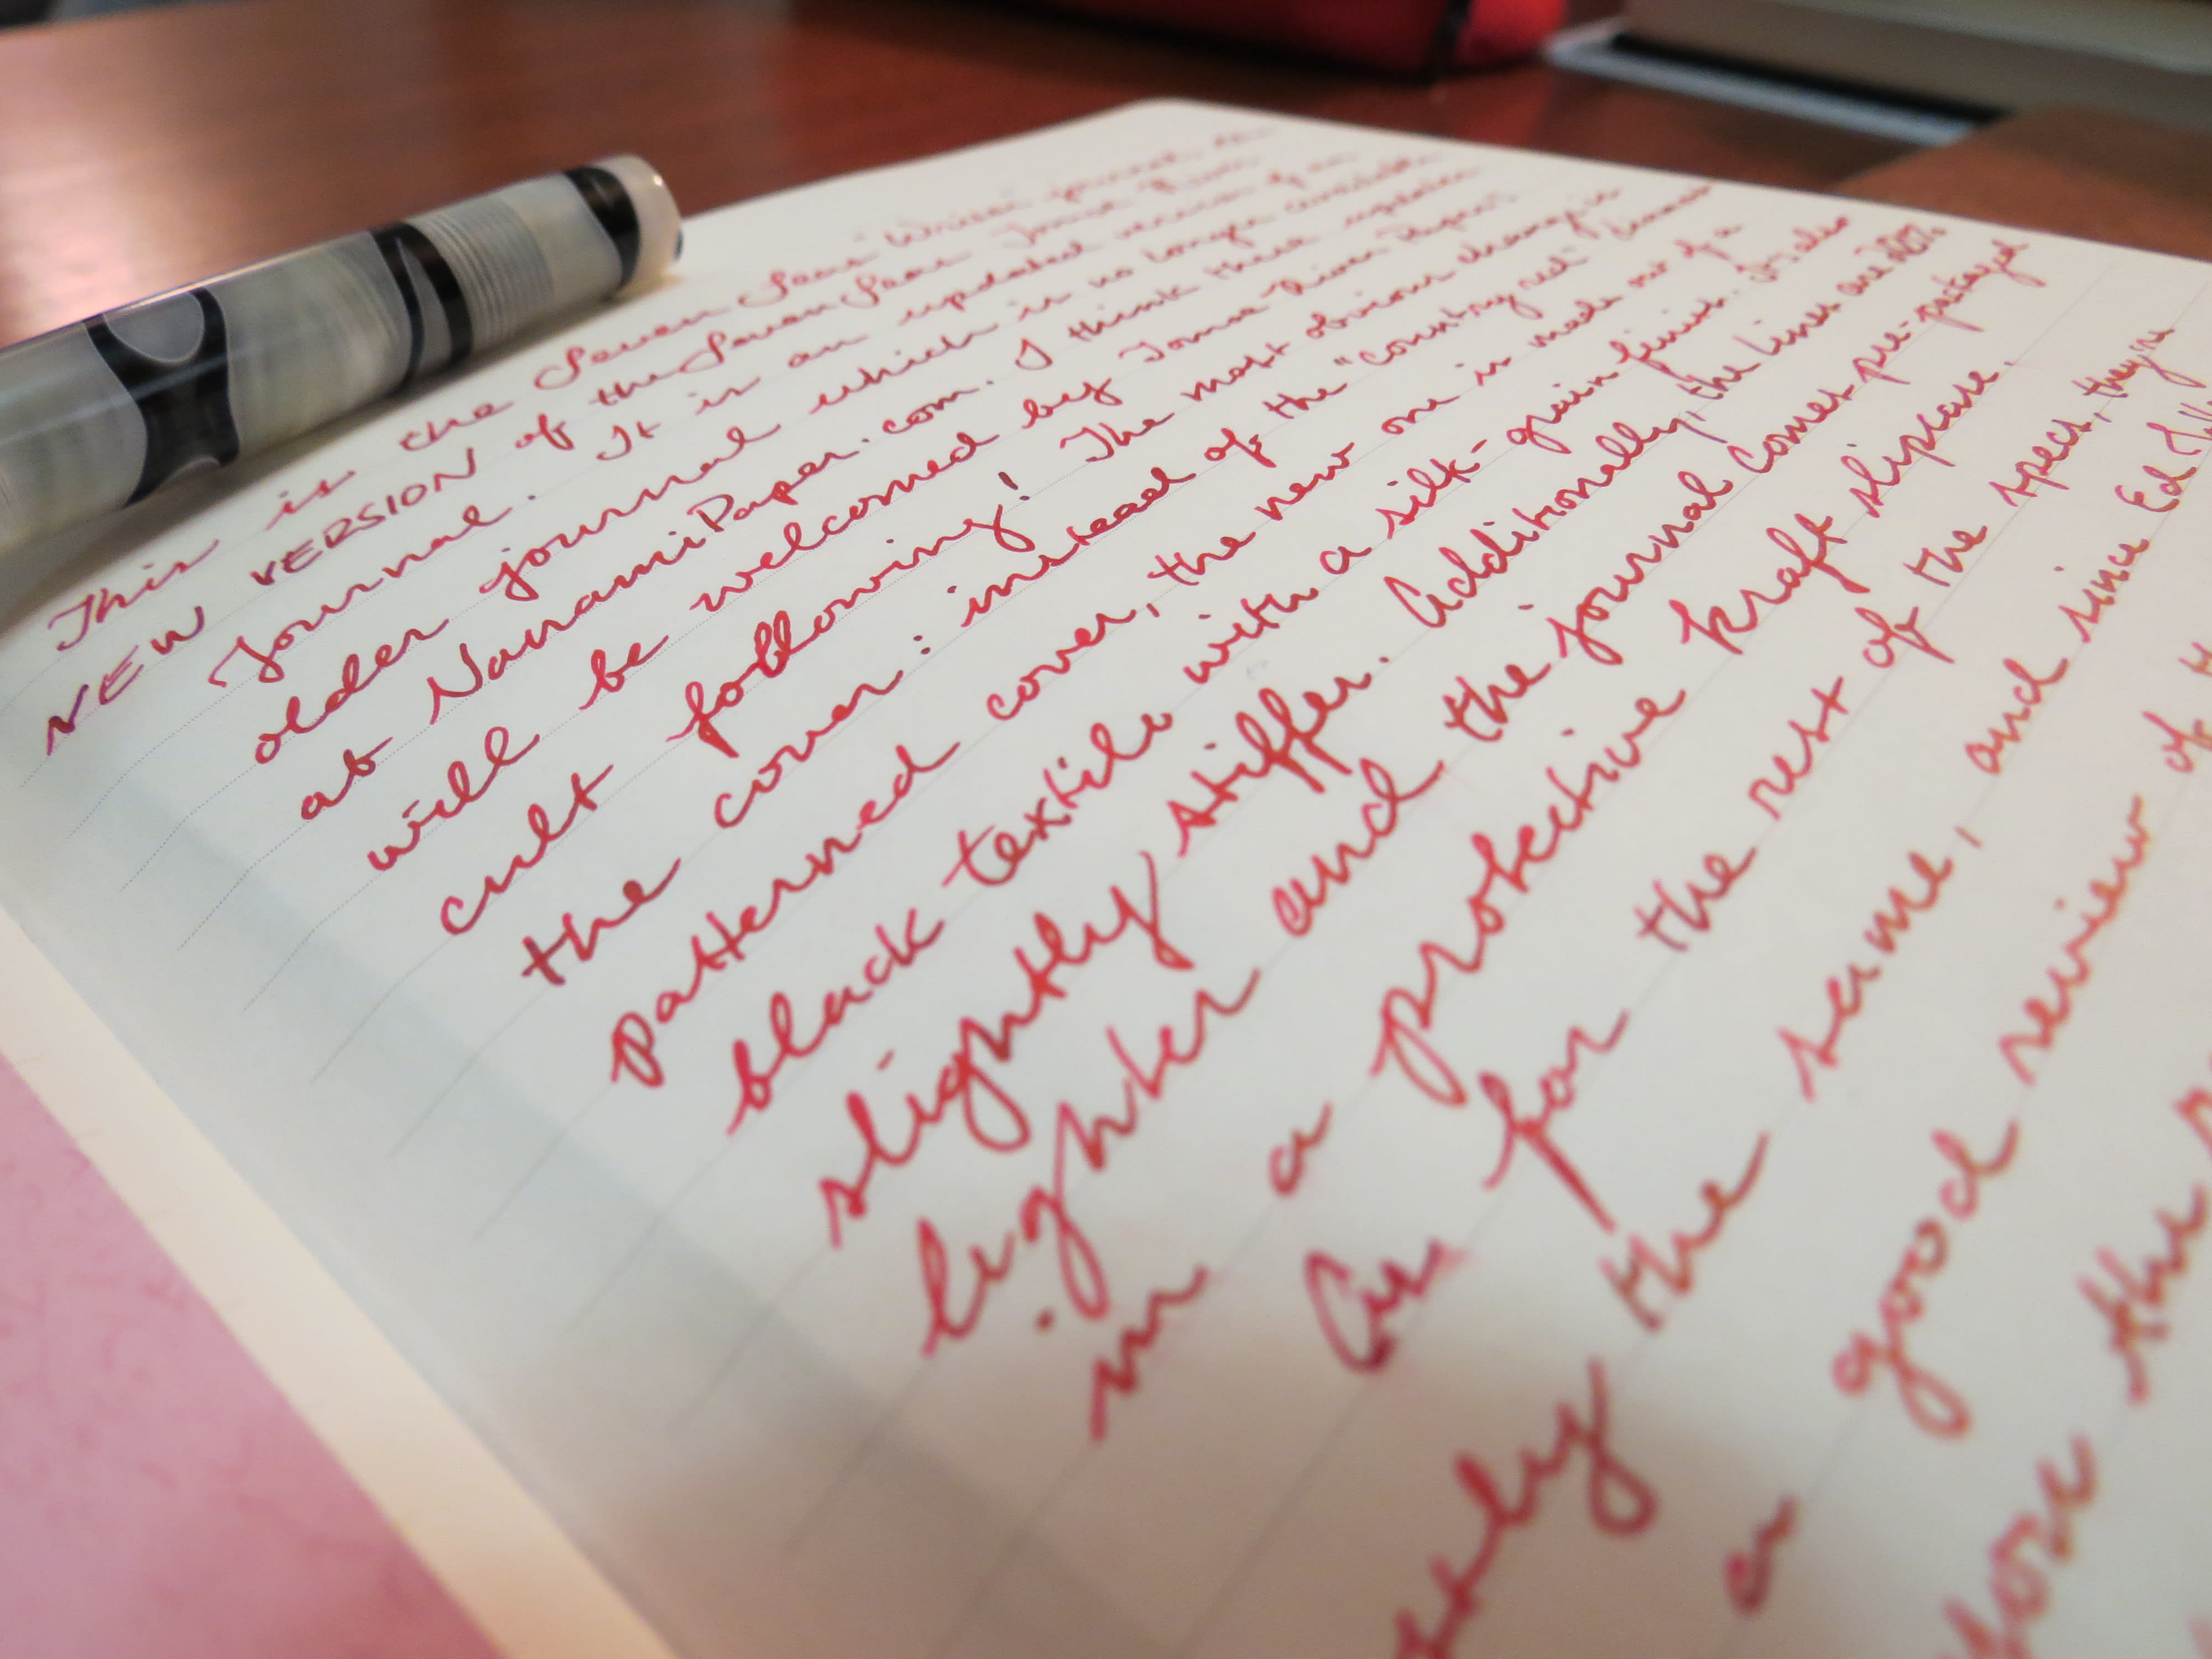 This is the Seven Seas "Writer" journal, the
NEW VERSION of the Seven Seas Tomoe River
journal. It is an updated version of an
older journal which is no longer available
at NanamiPaper.com. I think these updates
will be welcomed by Tomoe River Paper's
cult following! The most obvious change is
the cover: instead of the "country red" linen
patterned cover, the new one is made out of a
black textile with a silk-grain finish. It's also
slightly stiffer. Additionally, the lines are 20%
lighter and the journal comes pre-packaged
in a protective kraft slipcase.
As for the rest of the specs, they're
the same, and since Ed
a good review of
the